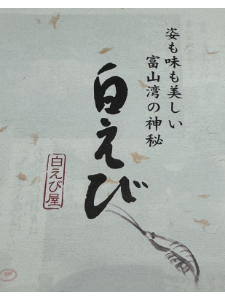 姿も味も美しい
富山湾の神秘
白えび
白えび屋